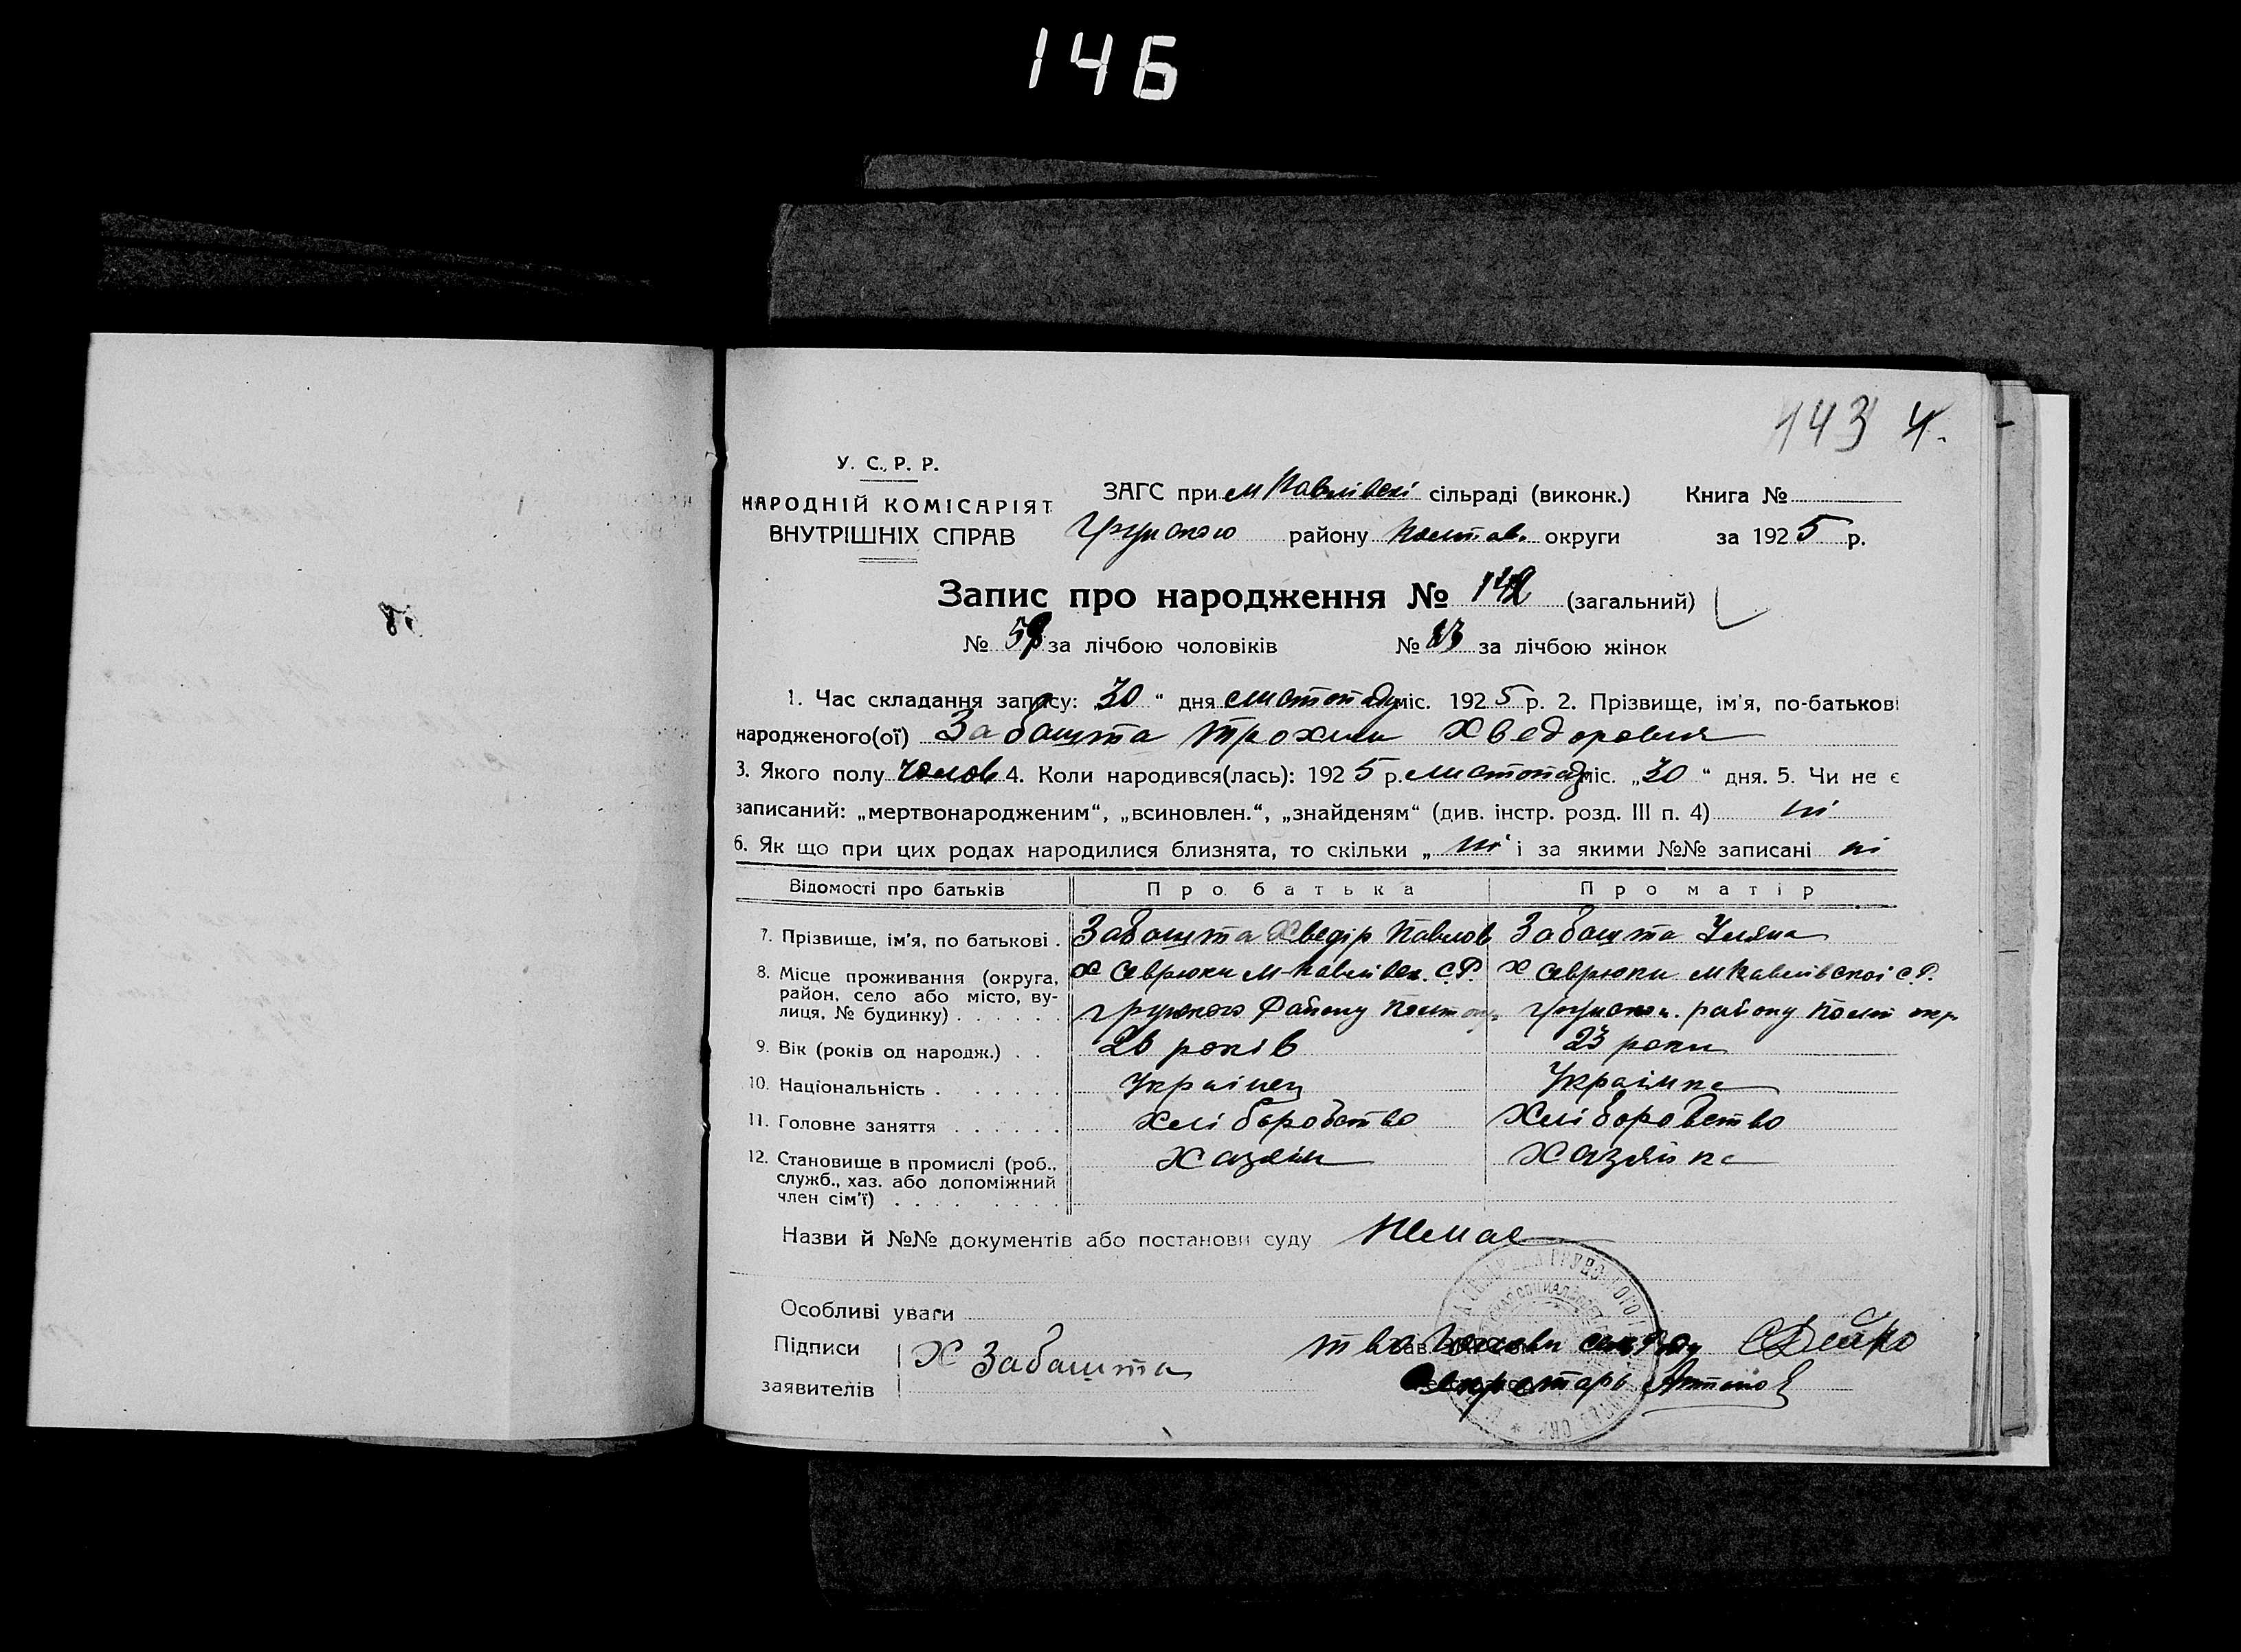 146
143 4.
У. С. Р. Р.
НАРОДНІЙ КОМІСАРІЯТ
ВНУТРІШНІХ СПРАВ
ЗАГС при м Павлівскі сільраді (виконк.) Книга №
Грунского району Полтав. округи за 1925 р.
Запис про народження № 142 (загальний)
№ 59 за лічбою чоловіків № 83 за лічбою жінок
1. Час складання запису: „30“ дня листопаду міс. 1925 р. 2. Прізвище, ім'я, по-батькові
народженого(ої) Забашта Трохим Хведорович
3. Якого полу чолов 4. Коли народився(лась): 1925 р. листопад міс. „30“ дня. 5. Чи не є
записаний: „мертвонародженим“, „всиновлен.“, „знайденям“ (див. інстр. розд. III п. 4) ні
6. Як що при цих родах народилися близнята, то скільки „ ні і за якими №№ записані ні
Відомості про батьків Про батька Про матір
7. Прізвище, ім'я, по батькові . Забашта Хведір Павлов Забашта Уляна
8. Місце проживання (округа, х Севрюки М-Павлівск. С.Р. х Севрюки мПавлівскої с.Р.
район, село або місто, ву-
лиця, № будинку) . . . . . . грунского Району Полт окр грунско району Полт окр
9. Вік (років од народж.) . . 26 років 23 роки
10. Національність . . . . . . Українец Українка
11. Головне заняття . . . . . . Хліборобство Хліборобство
12. Становище в промислі (роб., Хазяїн Хазяйка
служб., хаз. або допоміжний
член сім'ї) . . . . . . . .
Назви й №№ документів або постанови суду Немає
Особливі уваги
Підписи Х Забашта
заявителів
т в о Голови сілРаду
Секретарь